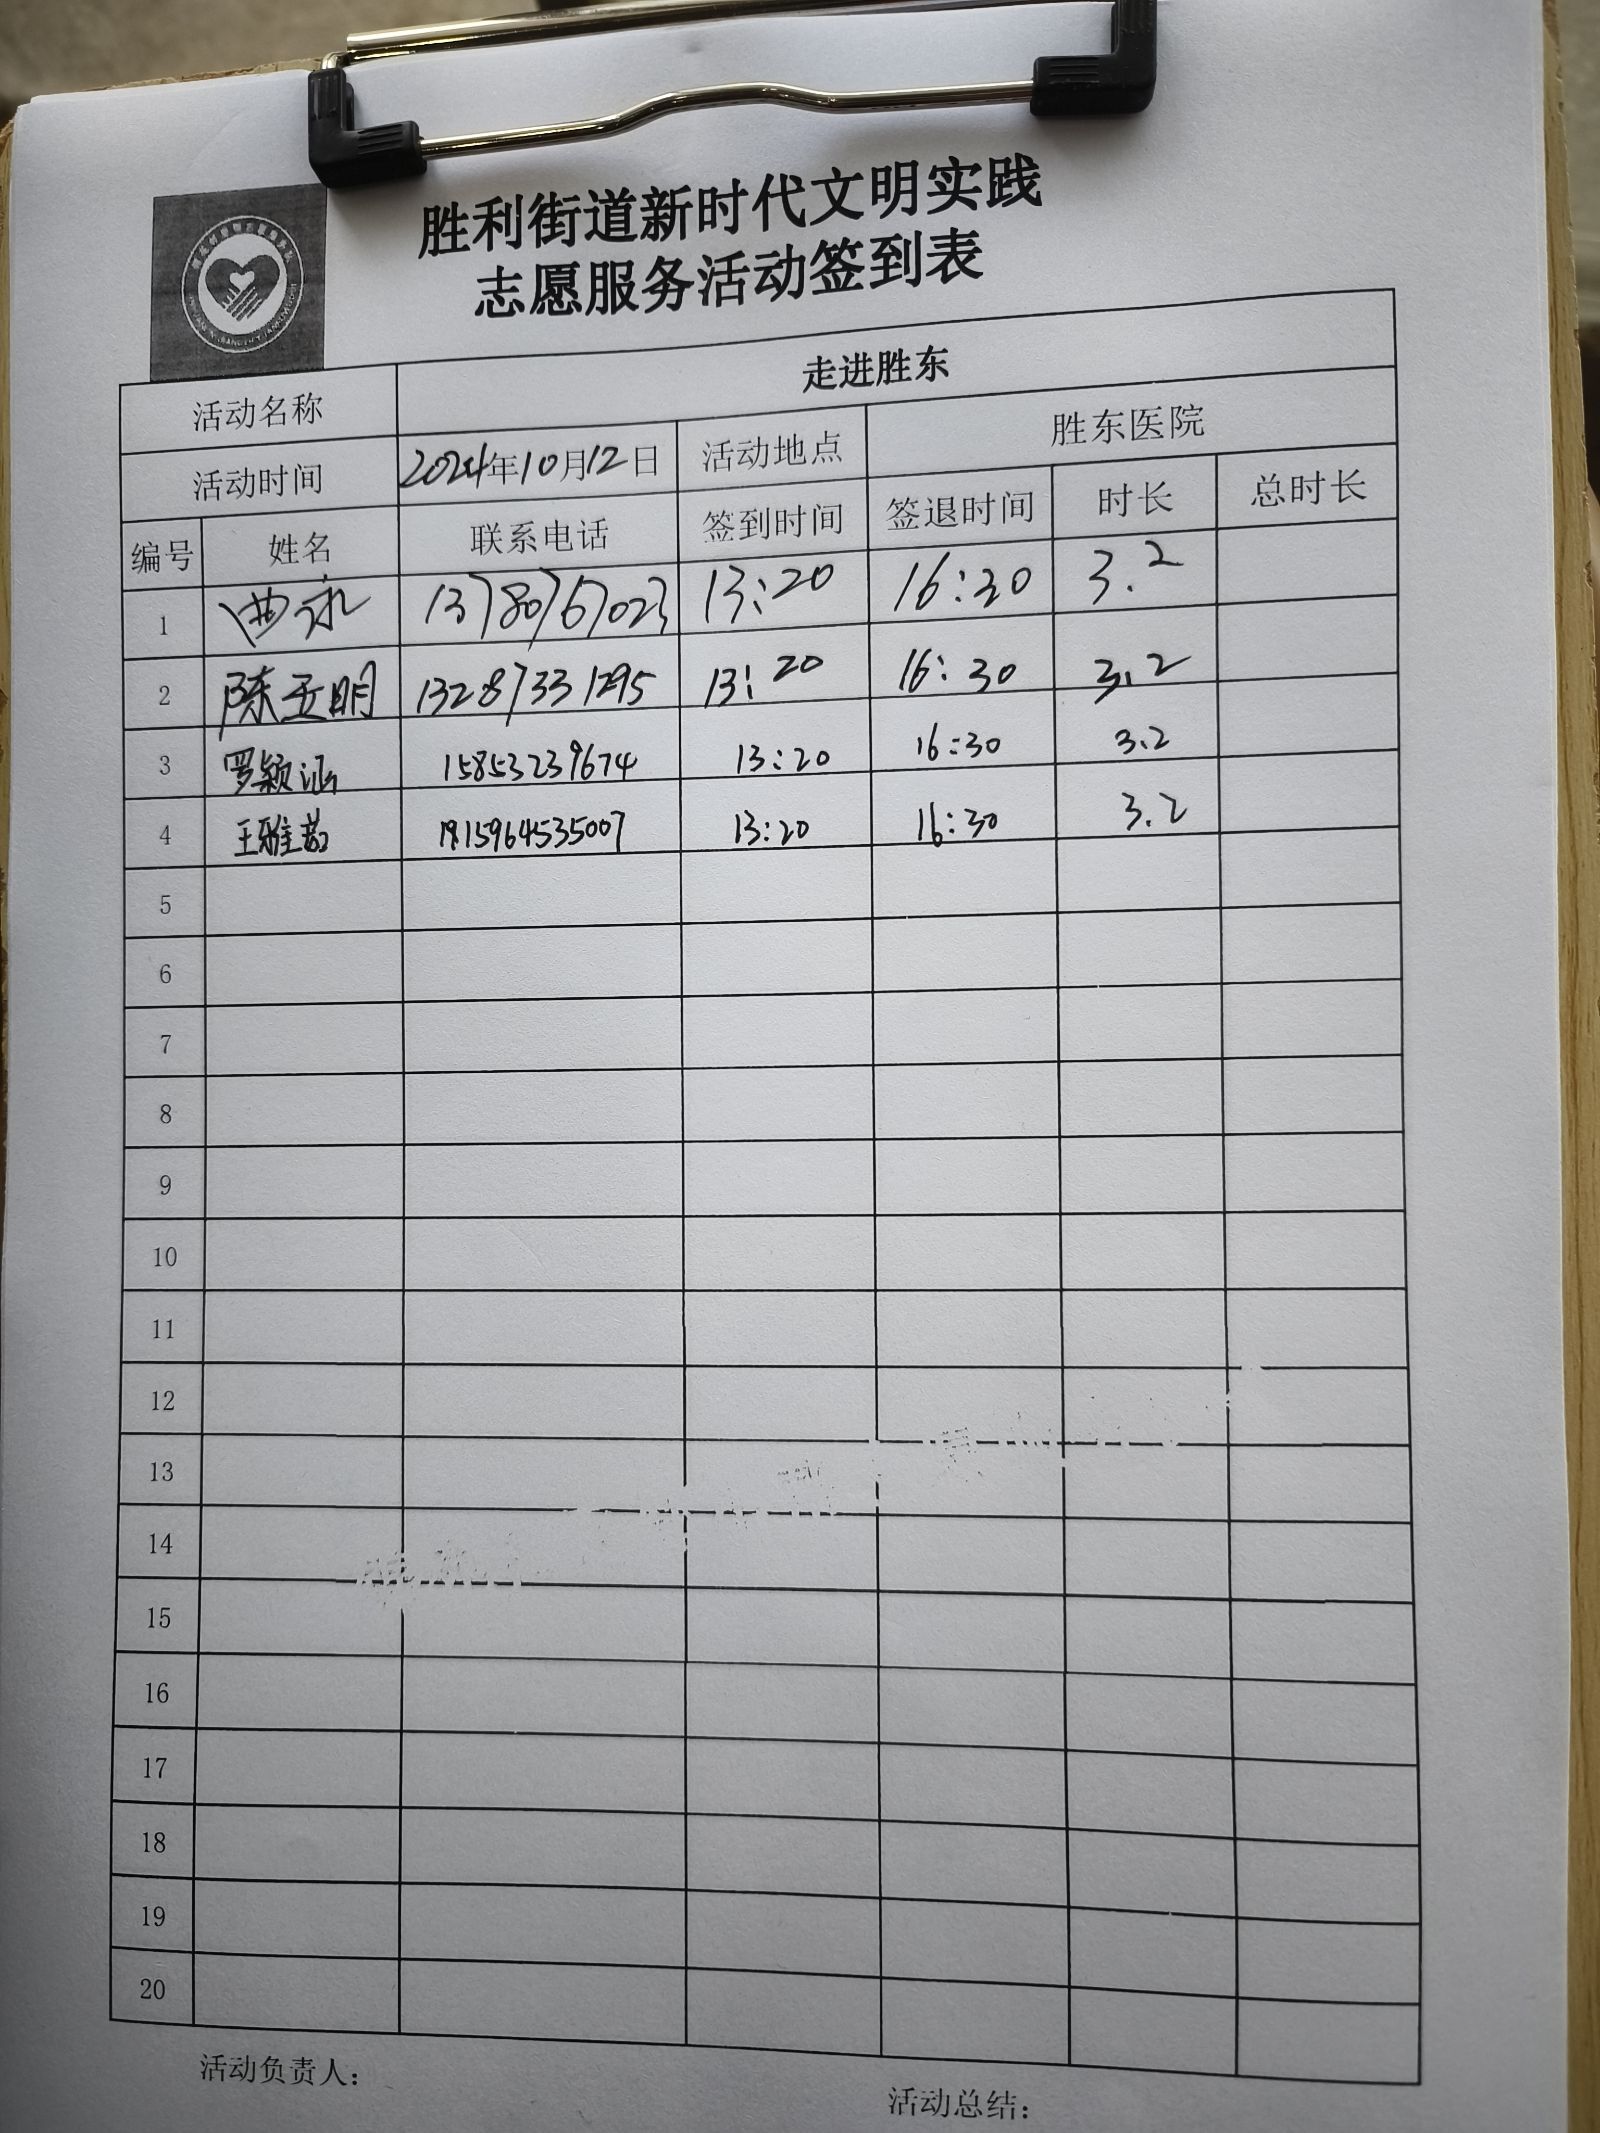 胜利街道新时代文明实践
志愿服务活动签到表
活动名称 走进胜东
活动时间 2024年10月12日 活动地点 胜东医院
编号 姓名 联系电话 签到时间 签退时间 时长 总时长
1 曲永 13780767023 13:20 16:30 3.2
2 陈亚明 13287331295 13:20 16:30 3.2
3 罗颖涵 15853239674 13:20 16:30 3.2
4 王雅茹 13:20 16:30 3.2
5
6
7
8
9
10
11
12
13
14
15
16
17
18
19
20
活动负责人：
活动总结：